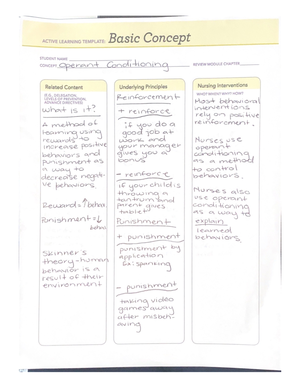 ACTIVE LEARNING TEMPLATE: Basic Concept
STUDENT NAME
CONCEPT Operant Conditioning
REVIEW MODULE CHAPTER
Related Content
(E.G., DELEGATION,
LEVELS OF PREVENTION,
ADVANCE DIRECTIVES)
What is it?
A method of
learning using
rewards to
increase positive
behaviors and
punishment as
a way to
decrease negat-
ive behaviors
Reward=↑beha
Punishment=↓
behav
Skinner's
theory-human
behavior is a
result of their
environment
Underlying Principles
Reinforcement
+ reinforce
if you do a
good job at
work and
your manager
gives you a
bonus
- reinforce
if your child is
throwing a
tantrum and
parent gives
tablet
Punishment
+ punishment
punishment by
application
Ex: spanking
- punishment
taking video
games away
after misbeh-
aving
Nursing Interventions
WHO? WHEN? WHY? HOW?
Most behavioral
interventions
rely on positive
reinforcement
Nurses use
operant
conditioning
as a method
to control
behaviors.
Nurses also
use operant
conditioning
as a way to
explain
learned
behaviors